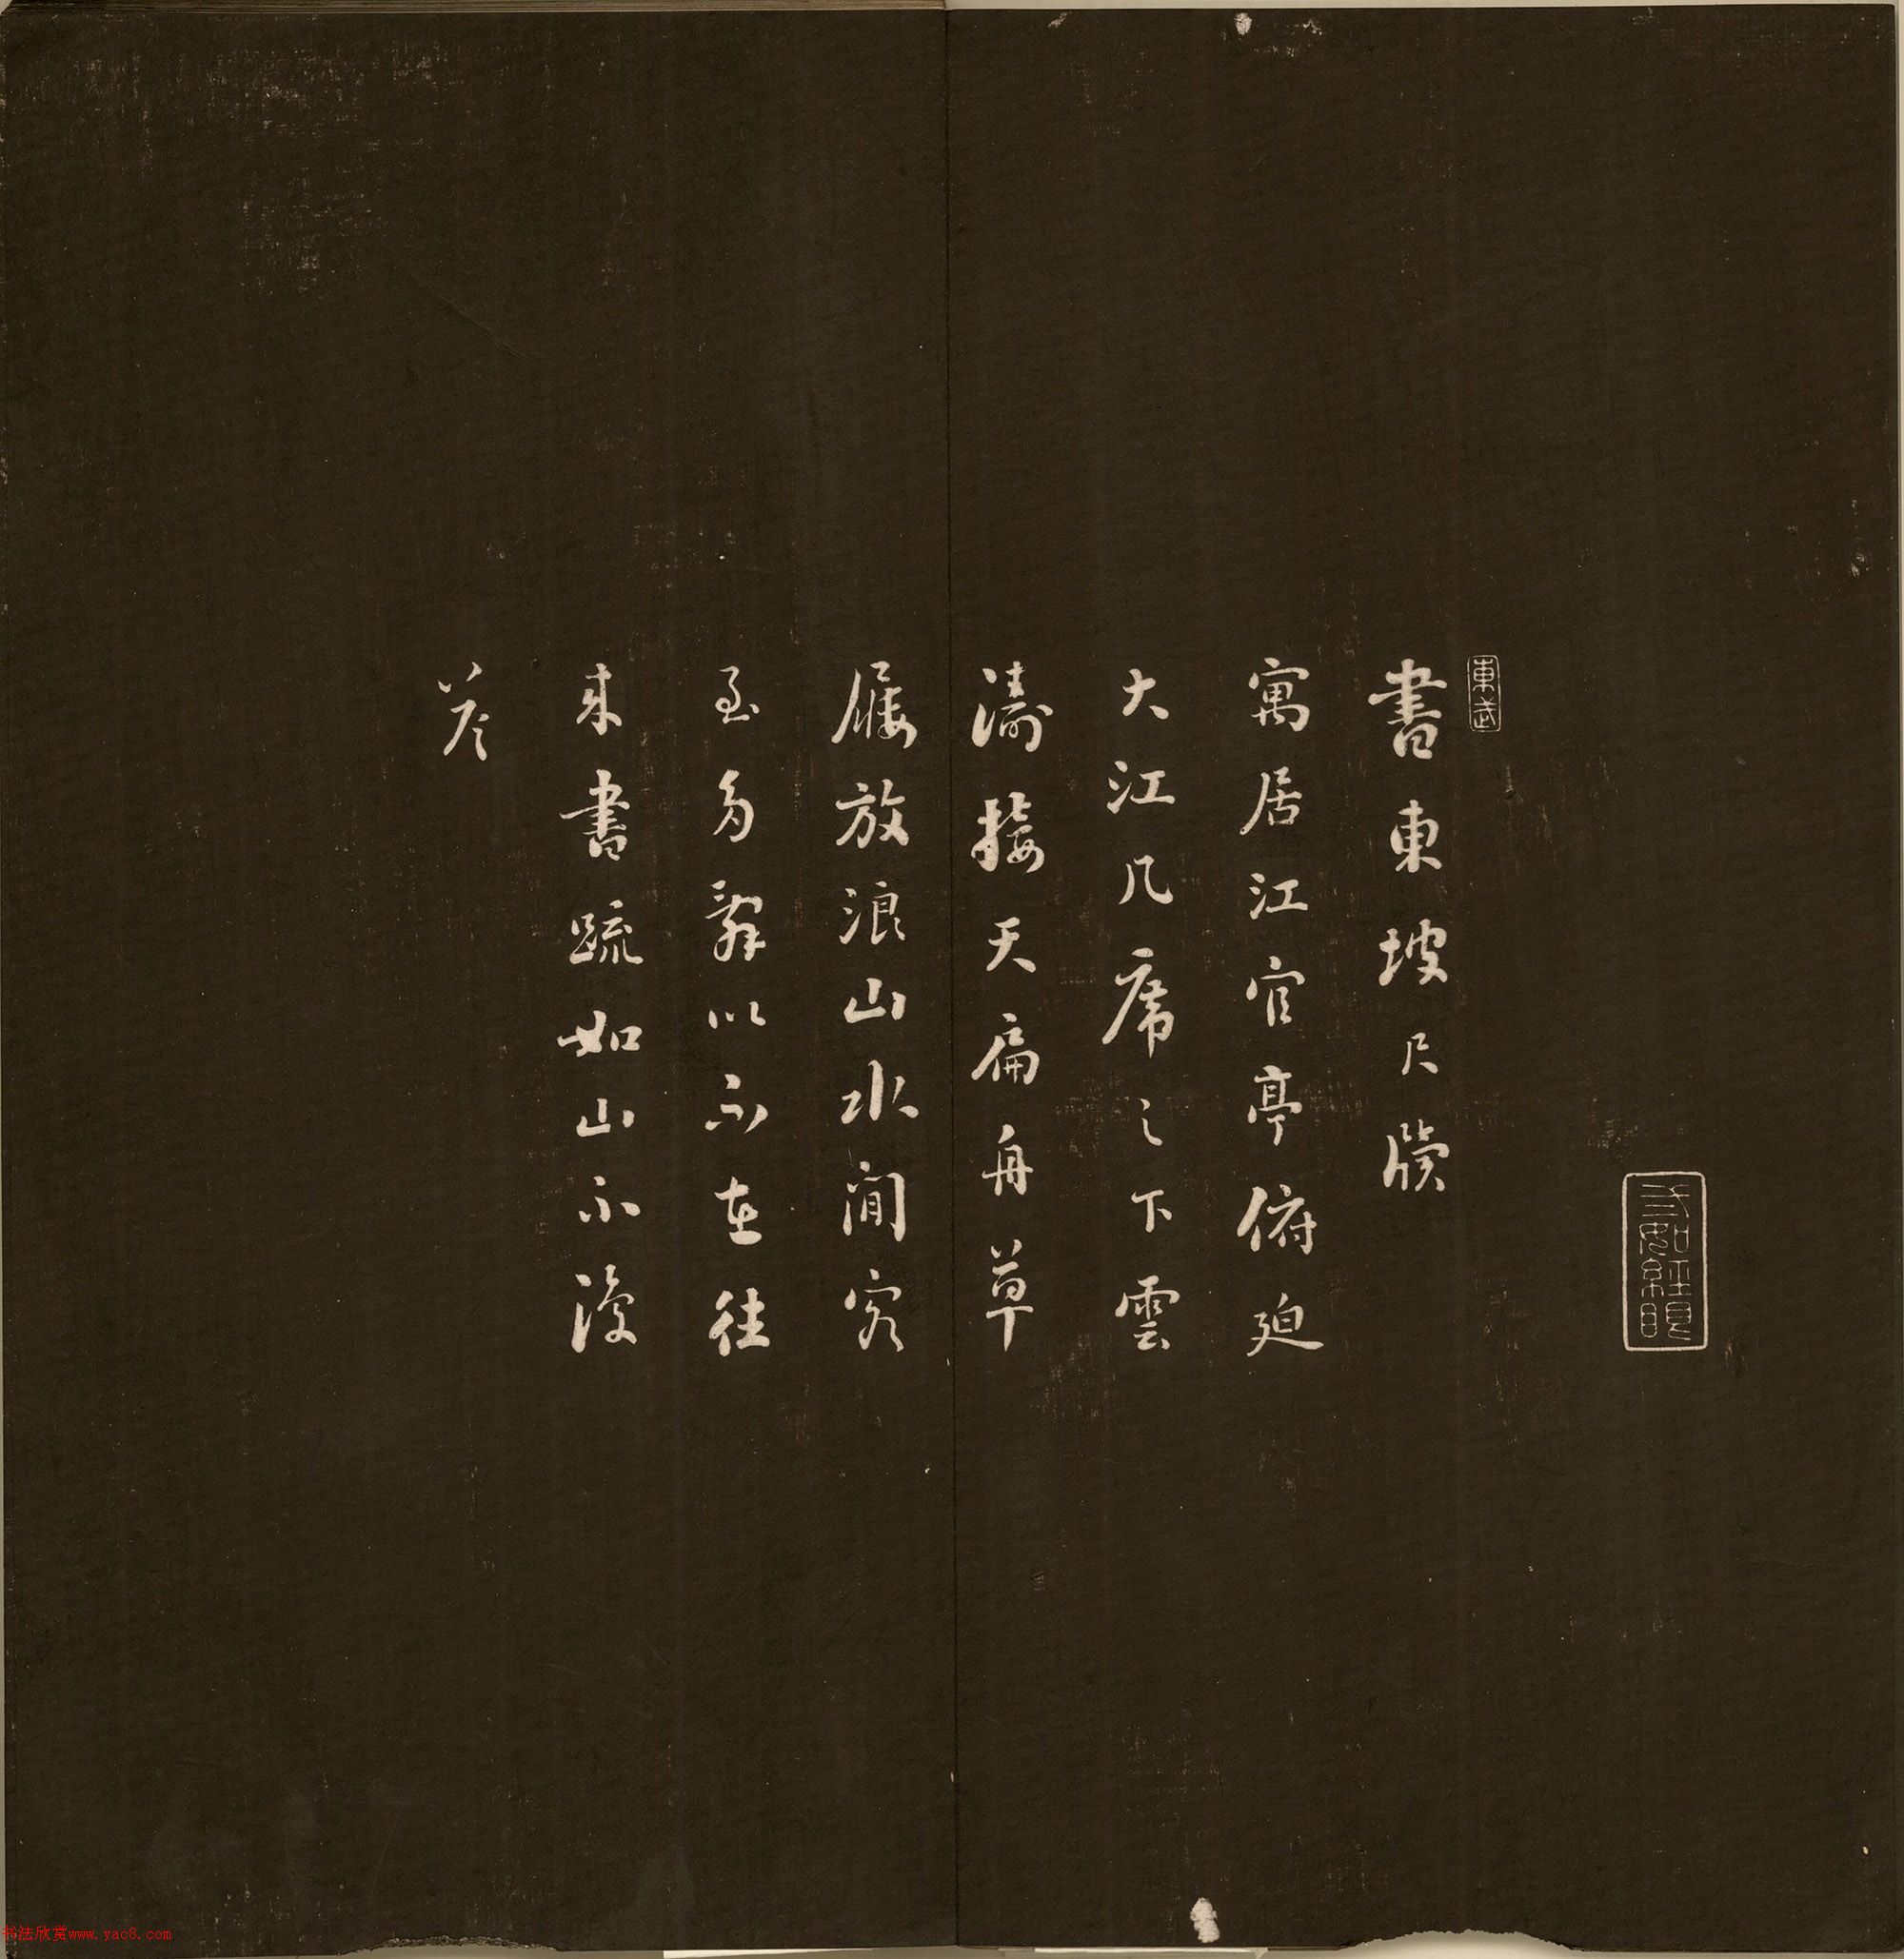 東武
書東坡尺牘
寓居江官亭俯廹
大江几席之下雲
濤接天扁舟草
屨放浪山水間客
至多辭以不在往
来書疏如山不復
答
书法欣赏www.yac8.com